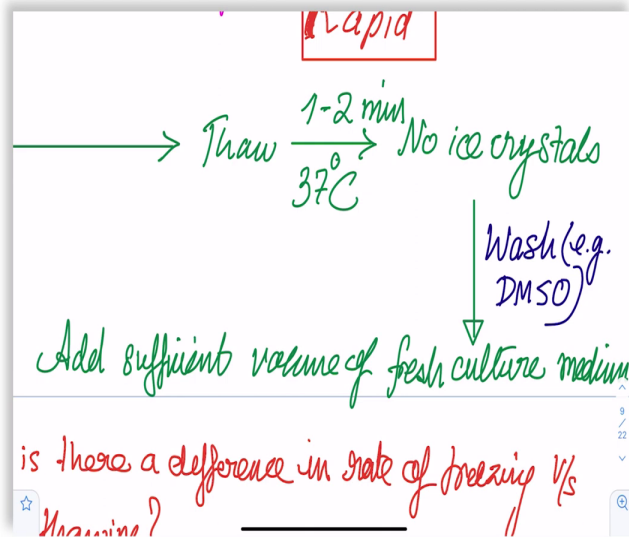 Rapid
Thaw 1-2 min 37°C No ice crystals
Wash (e.g.
DMSO)
Add sufficient volume of fresh culture medium
9
/
22
is there a difference in rate of freezing v/s
thawing?